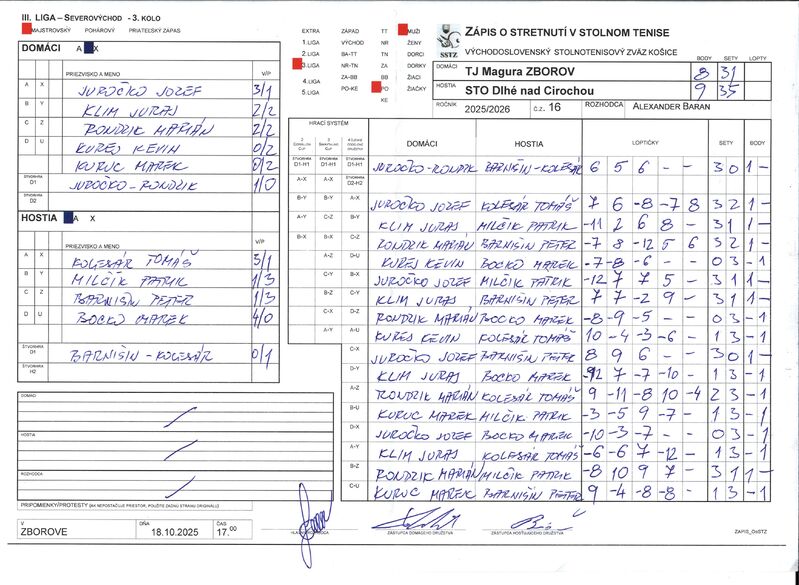 III. LIGA – SEVEROVÝCHOD - 3. KOLO
MAJSTROVSKÝ POHÁROVÝ PRIATEĽSKÝ ZÁPAS
DOMÁCI A X
PRIEZVISKO A MENO V/P
A X JUROČKO JOZEF 3/1
B Y KLIM JURAJ 2/2
C Z RONDRIK MARIÁN 2/2
D U KUREJ KEVIN 0/2
KURUC MAREK 0/2
ŠTVORHRA D1 JUROČKO - RONDRIK 1/0
ŠTVORHRA D2
HOSTIA A X
PRIEZVISKO A MENO V/P
A X KOLESÁR TOMÁŠ 3/1
B Y MILČÍK PATRIK 1/3
C Z BARNIŠIN PETER 1/3
D U BOCKO MAREK 4/0
ŠTVORHRA D1 BARNIŠIN - KOLESÁR 0/1
ŠTVORHRA H2
DOMÁCI
HOSTIA
ROZHODCA
PRIPOMIENKY/PROTESTY (AK NEPOSTAČUJE PRIESTOR, POUŽITE ZADNÚ STRANU ORIGINÁLU)
V ZBOROVE DŇA 18.10.2025 ČAS 17.00
EXTRA ZÁPAD TT MUŽI
1.LIGA VÝCHOD NR ŽENY
2.LIGA BA-TT TN DORCI
3.LIGA NR-TN ZA DORKY
4.LIGA ZA-BB BB ŽIACI
5.LIGA PO-KE PO ŽIAČKY
KE
SSTZ
ZÁPIS O STRETNUTÍ V STOLNOM TENISE
VÝCHODOSLOVENSKÝ STOLNOTENISOVÝ ZVÄZ KOŠICE
BODY SETY LOPTY
DOMÁCI TJ Magura ZBOROV 8 31
HOSTIA STO Dlhé nad Cirochou 9 35
ROČNÍK 2025/2026 č.z. 16 ROZHODCA ALEXANDER BARAN
HRACÍ SYSTÉM
DOMÁCI HOSTIA LOPTIČKY SETY BODY
ŠTVORHRA D1-H1 ŠTVORHRA D1-H1 ŠTVORHRA D1-H1 JUROČKO - RONDRIK BARNIŠIN - KOLESÁR 6 5 6 - - 3 0 1 -
A-X ŠTVORHRA D2-H2
B-Y B-Y A-X JUROČKO JOZEF KOLESÁR TOMÁŠ 7 6 -8 -7 8 3 2 1 -
A-Y C-Z B-Y KLIM JURAJ MILČÍK PATRIK -11 2 6 8 - 3 1 1 -
B-X B-X C-Z RONDRIK MARIÁN BARNIŠIN PETER -7 8 -12 5 6 3 2 1 -
A-Z D-U KUREJ KEVIN BOCKO MAREK -7 -8 -6 - - 0 3 - 1
C-Y B-X JUROČKO JOZEF MILČÍK PATRIK -12 7 7 5 - 3 1 1 -
B-Z C-Y KLIM JURAJ BARNIŠIN PETER 7 7 -2 9 - 3 1 1 -
C-X D-Z RONDRIK MARIÁN BOCKO MAREK -8 -9 -5 - - 0 3 - 1
A-Y A-U KUREJ KEVIN KOLESÁR TOMÁŠ 10 -4 -3 -6 - 1 3 - 1
C-X JUROČKO JOZEF BARNIŠIN PETER 8 9 6 - - 3 0 1 -
D-Y KLIM JURAJ BOCKO MAREK -12 7 -7 -10 - 1 3 - 1
A-Z RONDRIK MARIÁN KOLESÁR TOMÁŠ 9 -11 -8 10 -4 2 3 - 1
B-U KURUC MAREK MILČÍK PATRIK -3 -5 9 -7 - 1 3 - 1
D-X JUROČKO JOZEF BOCKO MAREK -10 -3 -7 - - 0 3 - 1
A-Y KLIM JURAJ KOLESÁR TOMÁŠ -6 -6 7 -12 - 1 3 - 1
B-Z RONDRIK MARIÁN MILČÍK PATRIK -8 10 9 7 - 3 1 1 -
C-U KURUC MAREK BARNIŠIN PETER 9 -4 -8 -8 - 1 3 - 1
ZÁSTUPCA DOMÁCEHO DRUŽSTVA ZÁSTUPCA HOSŤUJÚCEHO DRUŽSTVA ZAPIS_OoSTZ